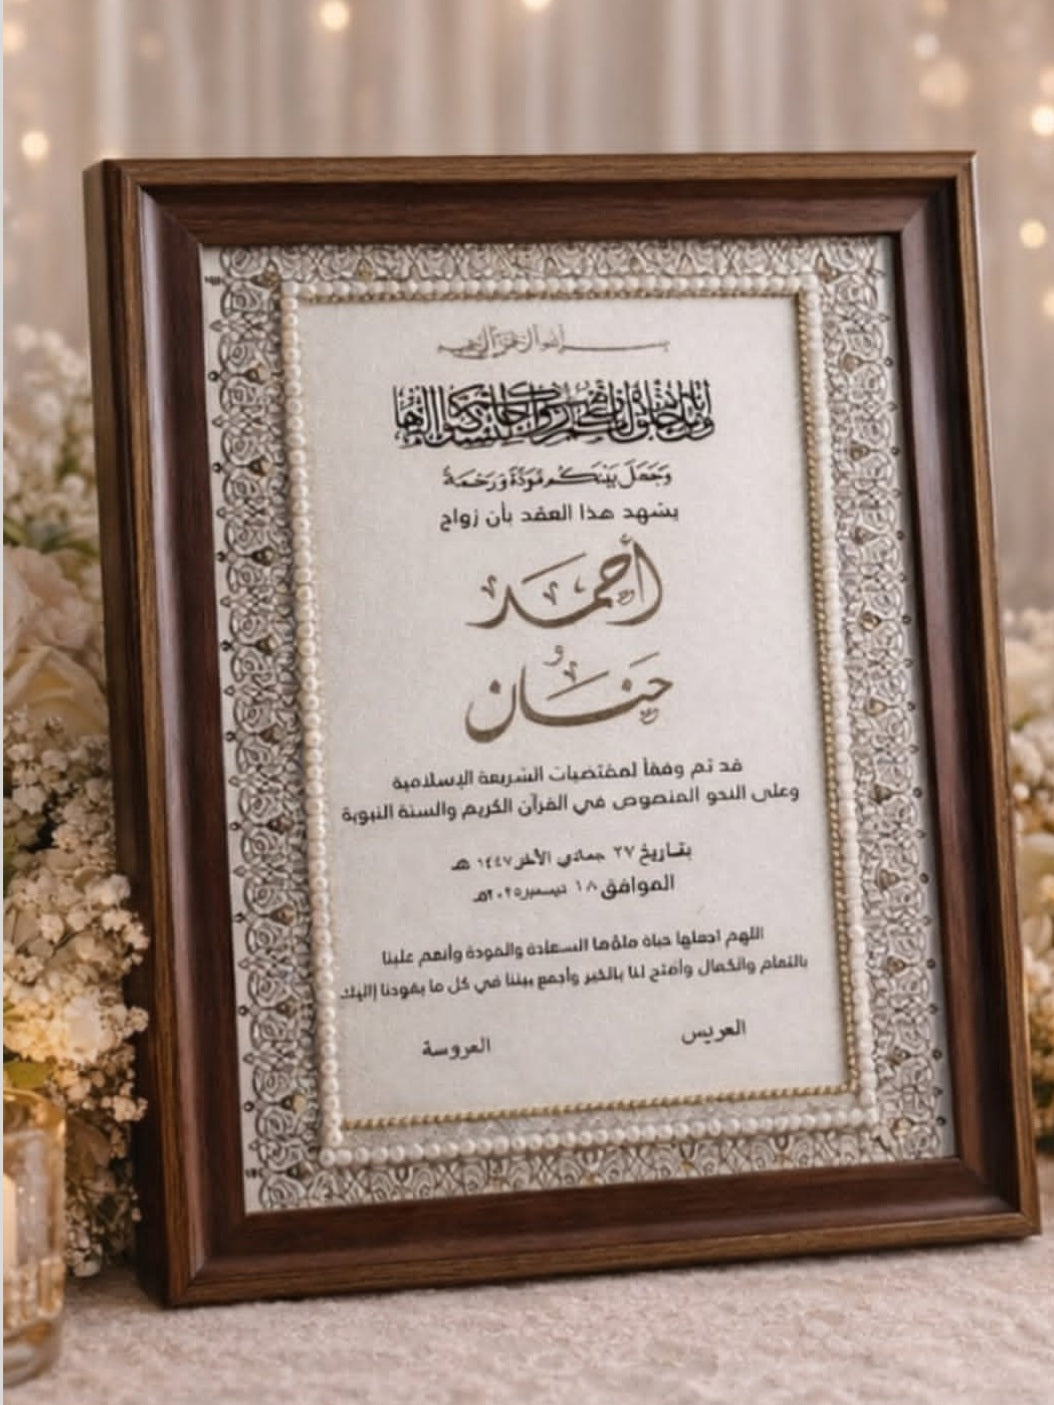 بسم الله الرحمن الرحيم
ومن آياته أن خلق لكم من أنفسكم أزواجا لتسكنوا إليها
وَجَعَلَ بَيْنَكُم مَّوَدَّةً وَرَحْمَةً
يشهد هذا العقد بأن زواج
أحمد
و
حنان
قد تم وفقاً لمقتضيات الشريعة الإسلامية
وعلى النحو المنصوص في القرآن الكريم والسنة النبوية
بتاريخ ٢٧ جمادي الآخر ١٤٤٧ هـ
الموافق ١٨ ديسمبر ٢٠٢٥مـ
اللهم اجعلها حياة ملؤها السعادة والمودة وأنعم علينا
بالتمام والكمال وأفتح لنا بالخير وأجمع بيننا في كل ما يقودنا إليك
العريس
العروسة